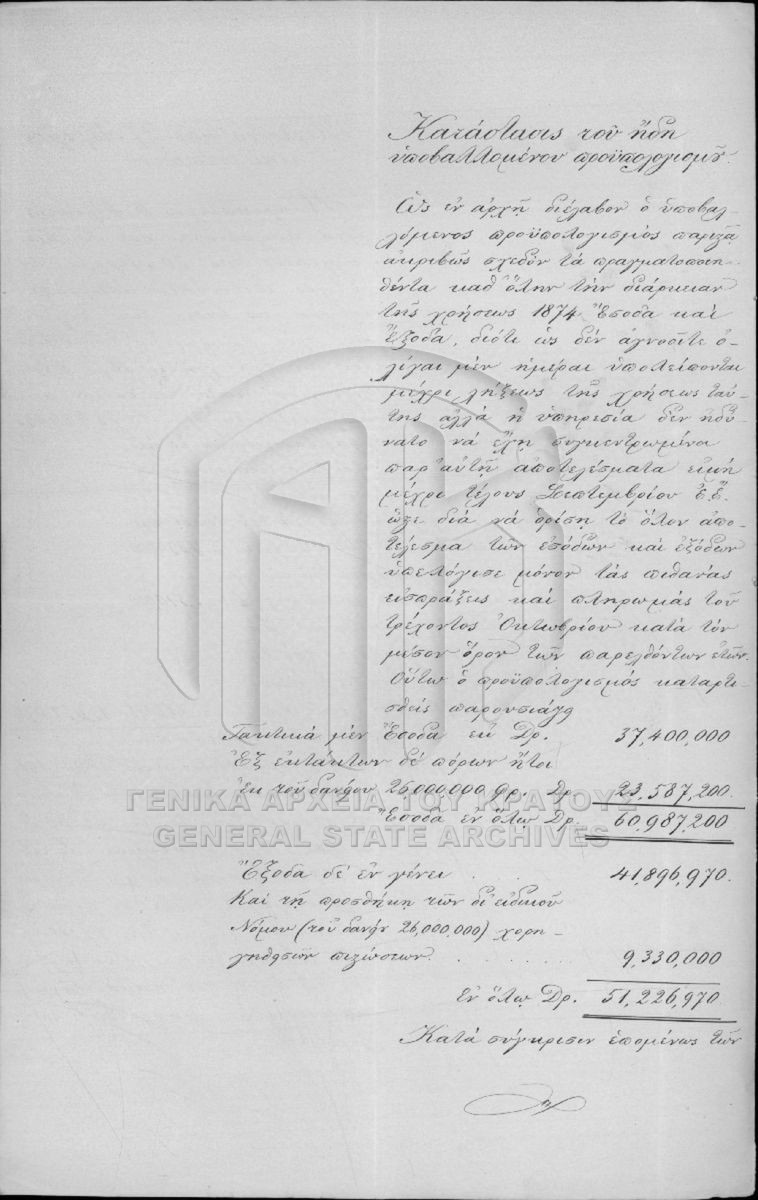 Κατάστασις τοῦ ἤδη
ὑποβαλλομένου προϋπολογισμοῦ.
Ὡς ἐν ἀρχῇ διέλαβον ὁ ὑποβαλ-
λόμενος προϋπολογισμὸς παριστᾷ
ἀκριβῶς σχεδὸν τὰ πραγματοποιη-
θέντα καθ' ὅλην τὴν διάρκειαν
τῆς χρήσεως 1874 Ἔσοδα καὶ
Ἔξοδα, διότι ὡς δὲν ἀγνοεῖτε ὀ-
λίγαι μὲν ἡμέραι ὑπολείπονται
μέχρι λήξεως τῆς χρήσεως ταύ-
της ἀλλὰ ἡ ὑπηρεσία δὲν ἠδύ-
νατο νὰ ἔχῃ συγκεντρωμένα
παρ' αὐτῇ ἀποτελέσματα εἰμὴ
μέχρι τέλους Σεπτεμβρίου ἐ.ἔ.
ὥστε διὰ νὰ ὁρίσῃ τὸ ὅλον ἀπο-
τέλεσμα τῶν ἐσόδων καὶ ἐξόδων
ὑπελόγισε μόνον τὰς πιθανὰς
εἰσπράξεις καὶ πληρωμὰς τοῦ
τρέχοντος Ὀκτωβρίου κατὰ τὸν
μέσον ὅρον τῶν παρελθόντων ἐτῶν.
Οὕτω ὁ προϋπολογισμὸς καταρτι-
σθεὶς παρουσιάζει
Τακτικὰ μὲν Ἔσοδα ἐκ Δρ. 37,400,000
Ἐξ ἐκτάκτων δὲ πόρων ἤτοι
ἐκ τοῦ δανείου 26,000,000 φρ. Δρ. 23,587,200.
Ἔσοδα ἐν ὅλῳ Δρ. 60,987,200
Ἔξοδα δὲ ἐν γένει . . 41,896,970.
Καὶ τῇ προσθήκῃ τῶν δι' εἰδικοῦ
Νόμου (τοῦ δανείου 26,000,000) χορη-
γηθεισῶν πιστώσεων. . . . . . . 9,330,000
Ἐν ὅλῳ Δρ. 51,226,970
Κατὰ σύγκρισιν ἑπομένως τῶν
ΓΕΝΙΚΑ ΑΡΧΕΙΑ ΤΟΥ ΚΡΑΤΟΥΣ
GENERAL STATE ARCHIVES